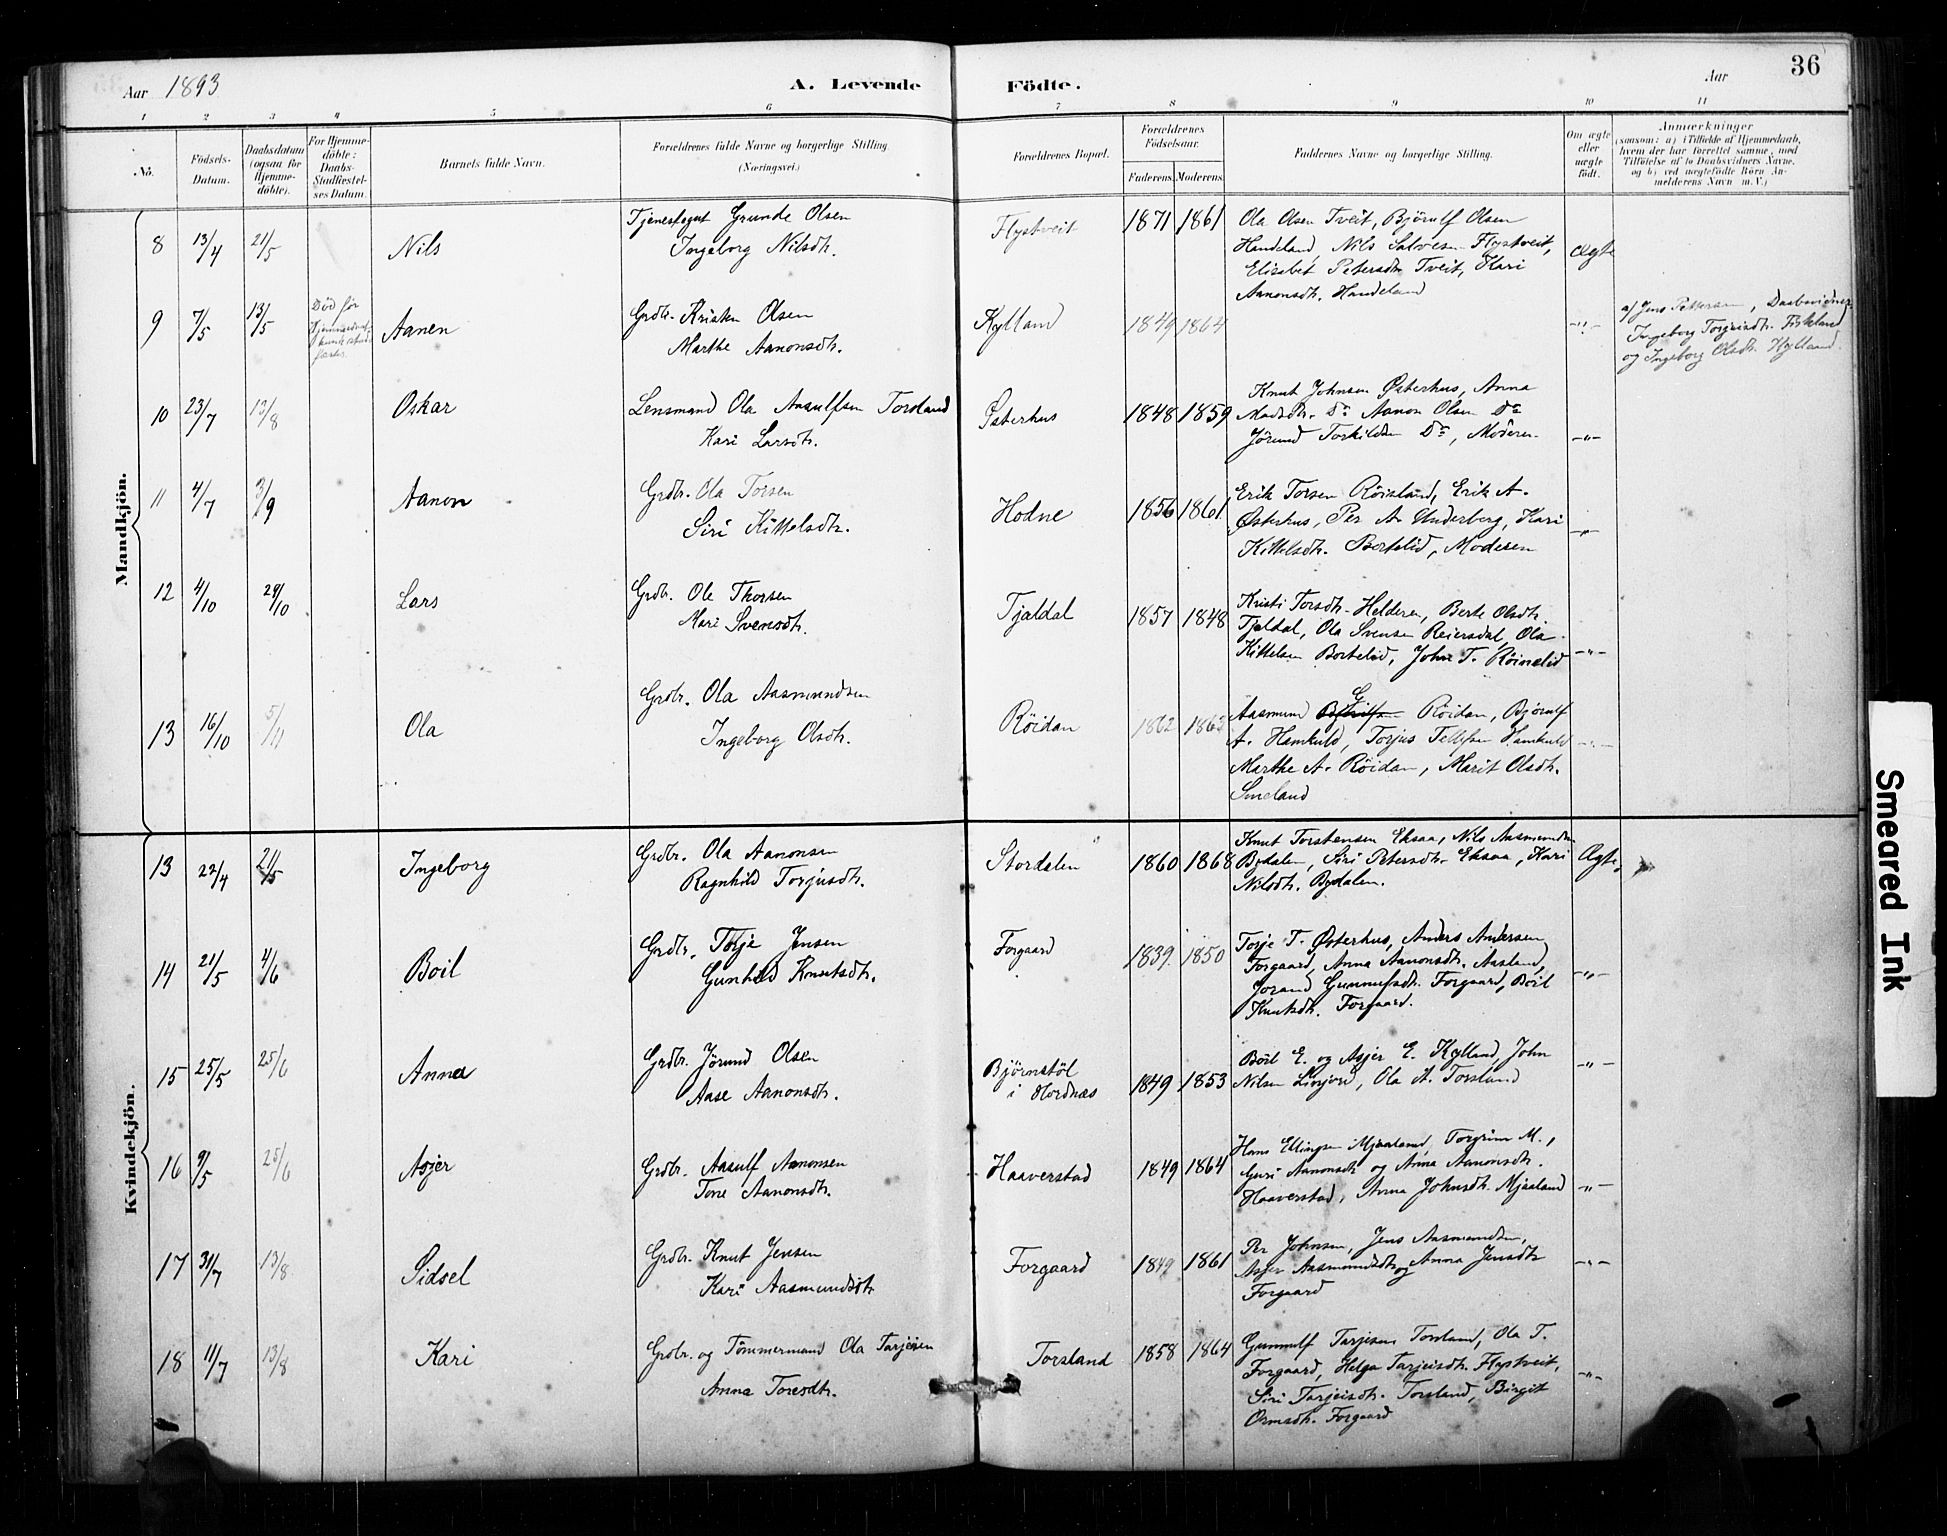 Aar 1893
A. Levende Födte.
Aar
36
1 2 3 4 5 6 7 8 9 10 11
No.
Födsels-Datum.
Daabsdatum (ogsaa for Hjemme-döbte).
For Hjemme-döbte: Daabs-Stadfæstel-ses Datum.
Barnets fulde Navn.
Forældrenes fulde Navne og borgerlige Stilling. (Næringsvei.)
Forældrenes Bopæl.
Forældrenes Födselsaar.
Faderens. Moderens.
Faddernes Navne og borgerlige Stilling.
Om ægte eller uægte födt.
Anmærkninger
(saasom: a) i Tilfælde af Hjemmedaab, hvem der har forrettet samme, med Tilföielse af to Daabsvidners Navne, og b) ved uægtefödte Börn An-melderens Navn m. V.)
Mandkjön.
8 13/4 21/5 Nils
Tjenestegut Grunde Olsen
Ingeborg Nilsdtr.
Flystveit 1871 1861
Ola Olsen Tveit, Bjørulf Olsen
Handeland, Nils Salvesen Flystveit,
Elisabet Petersdtr Tveit, Kari
Aanonsdtr. Handeland
Ægte
9 7/5 13/5 Død før
Aanen
Grdbr. Kristen Olsen
Marthe Aanonsdtr.
Kylland 1849 1864
-"-
af Jens Pettersen, Daabsvidner
Ingeborg Torgeisdtr. Fiskeland
og Ingeborg Olsdtr. Kylland.
10 23/7 13/8 Oskar
Lensmand Ola Aasulfsen Torsland
Kari Larsdtr.
Østerhus 1848 1859
Knut Johnsen Østerhus, Anna
Madsdtr. Do Aanon Olsen Do
Jörund Torkildsen Do, Moderen
-"-
11 4/7 3/9 Aanon
Grdbr. Ola Torsen
Siri Kittelsdtr.
Hodne 1856 1861
Erik Torsen Röisland, Erik A.
Østerhus, Per A. Underberg, Kari
Kittelsdtr. Bortelid, Moderen
-"-
12 4/10 29/10 Lars
Grdbr. Ole Thorsen
Mari Svensdtr.
Tjaldal 1857 1848
Kristi Torsdtr. Helderen, Berte Olsdtr.
Tjaldal, Ola Svensen Reiersdal, Ola
Kittelsen Bortelid, John T. Röinelid
-"-
13 16/10 5/11 Ola
Grdbr. Ola Aasmundsen
Ingeborg Olsdtr.
Röidan 1862 1863
Aasmund G. Röidan, Bjørulf
A. Hamkuld, Torjus Tellefsen Hamkuld
Marthe A. Röidan, Marit Olsdtr.
Smeland
-"-
Kvindekjön.
13 22/4 21/5 Ingeborg
Grdbr. Ola Aanonsen
Ragnhild Torjusdtr.
Stordalen 1860 1868
Knut Torstensen Eksaa, Nils Aasmundsen
Bydalen, Siri Petersdtr. Eksaa, Kari
Nilsdtr. Bydalen.
Ægte
14 21/5 4/6 Boil
Grdbr. Torje Jensen
Gunhild Knutsdtr.
Forgaard 1839 1850
Torje T. Østerhus, Anders Andersen
Forgaard, Anna Aanonsdtr. Aasland,
Jorand Gunnulfsdtr. Forgaard, Böil
Knutsdtr. Forgaard.
-"-
15 25/5 25/6 Anna
Grdbr. Jörund Olsen
Aase Aanonsdtr.
Björnstöl
i Hordnæs
1849 1853
Böil E. og Asjer E. Kylland, John
Nilsen Linjord, Ola A. Torsland
-"-
16 9/5 25/6 Asjer
Grdbr. Aasulf Aanonsen
Tone Aanonsdtr.
Haaverstad 1849 1864
Hans Ellingsen Mjaaland, Torgrim M.,
Guri Aanonsdtr og Anna Aanonsdtr.
Haaverstad, Anna Johnsdtr. Mjaaland
-"-
17 31/7 13/8 Sidsel
Grdbr. Knut Jensen
Kari Aasmundsdtr
Forgaard 1849 1861
Per Johnsen, Jens Aasmundsen,
Asjer Aasmundsdtr og Anna Jensdtr
Forgaard
-"-
18 11/7 13/8 Kari
Grdbr. og Tömmermand Ola Tarjeisen
Anna Toresdtr.
Torsland 1858 1864
Gunnulf Tarjeisen Torsland, Ola T.
Forgaard, Helga Tarjeisdtr. Flystveit,
Siri Tarjeisdtr. Torsland, Birgit
Ormsdtr. Forgaard
-"-
Smeared Ink